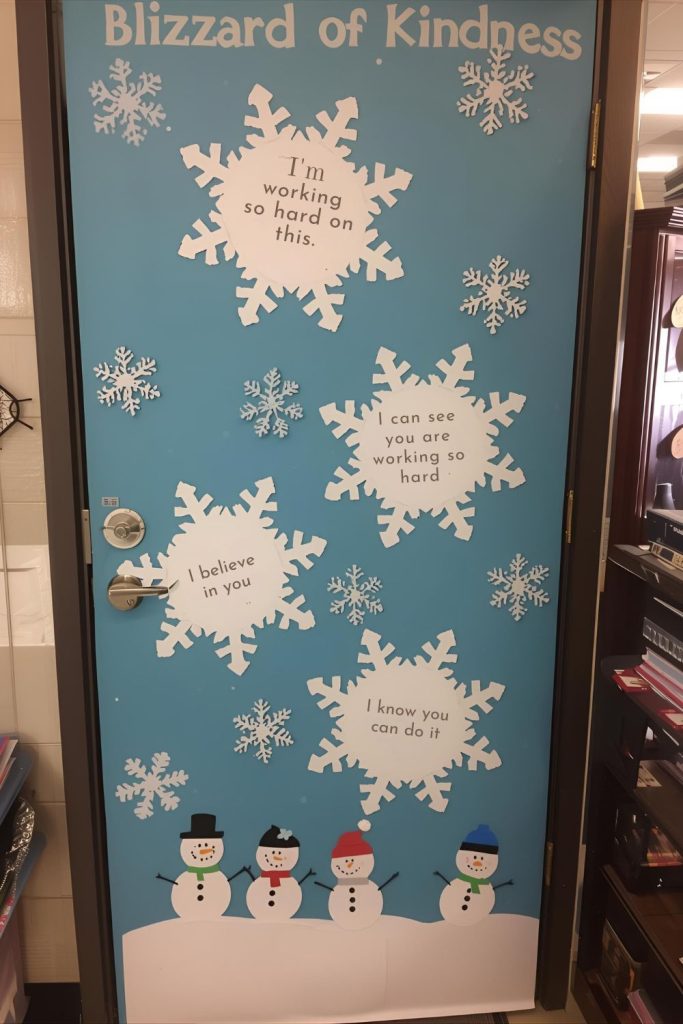 Blizzard of Kindness
I'm
working
so hard on
this.
I can see
you are
working so
hard
I believe
in you
I know you
can do it